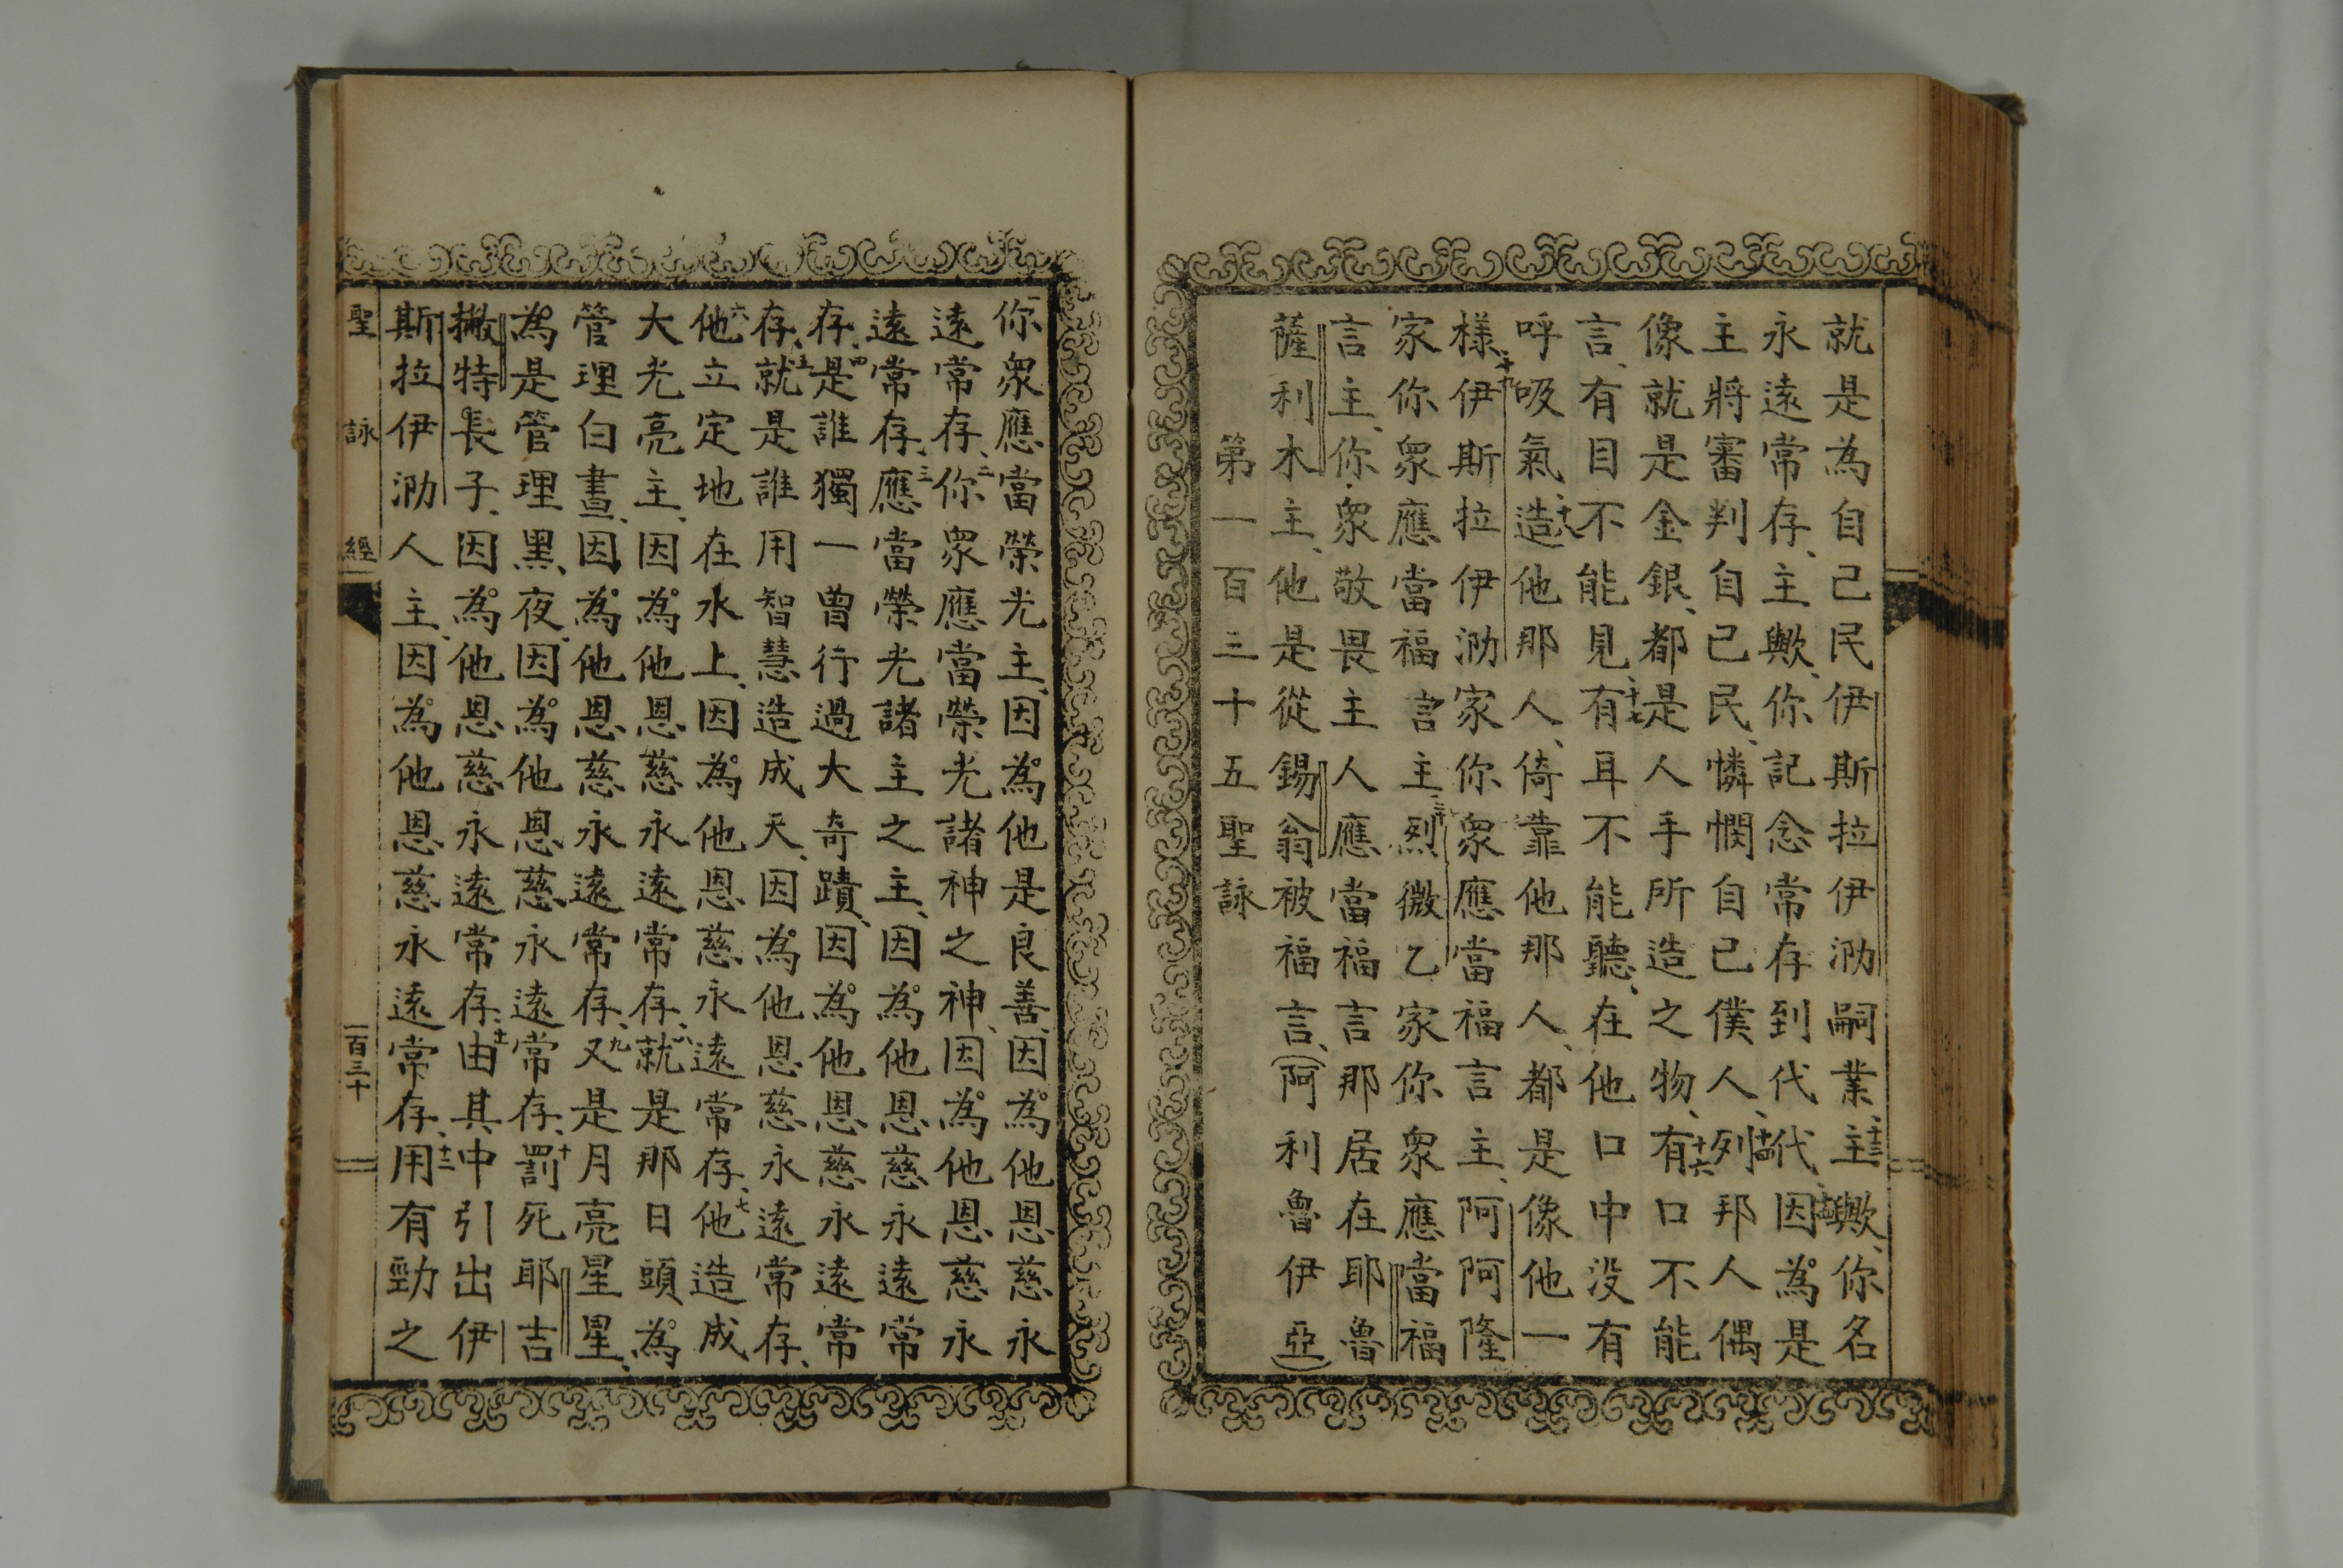 就是為自己民伊斯拉伊泐嗣業、十三主歟、你名
永遠常存、主歟、你記念常存到代代、十四因為是
主將審判自己民、憐憫自己僕人、十五列邦人偶
像就是金銀、都是人手所造之物、十六有口不能
言、有目不能見、十七有耳不能聽、在他口中沒有
呼吸氣、十八造他那人、倚靠他那人、都是像他一
樣、十九伊斯拉伊泐家你眾應當福言主、阿阿隆
家你眾應當福言主、二十烈微乙家你眾應當福
言主、你眾敬畏主人應當福言那居在耶魯
薩利木主、他是從錫翁被福言、(阿利魯伊亞)
第一百三十五聖詠
一你眾應當榮光主、因為他是良善、因為他恩慈永
遠常存、二你眾應當榮光諸神之神、因為他恩慈永
遠常存、三應當榮光諸主之主、因為他恩慈永遠常
存、四是誰獨一曾行過大奇蹟、因為他恩慈永遠常
存、五就是誰用智慧造成天、因為他恩慈永遠常存、
六他立定地在水上、因為他恩慈永遠常存、七他造成
大光亮主、因為他恩慈永遠常存、八就是那日頭為
管理白晝、因為他恩慈永遠常存、九又是月亮星星、
為是管理黑夜、因為他恩慈永遠常存、十罰死耶吉
撇特長子、因為他恩慈永遠常存、十一由其中引出伊
斯拉伊泐人主、因為他恩慈永遠常存、十二用有勁之
聖詠經 一百三十